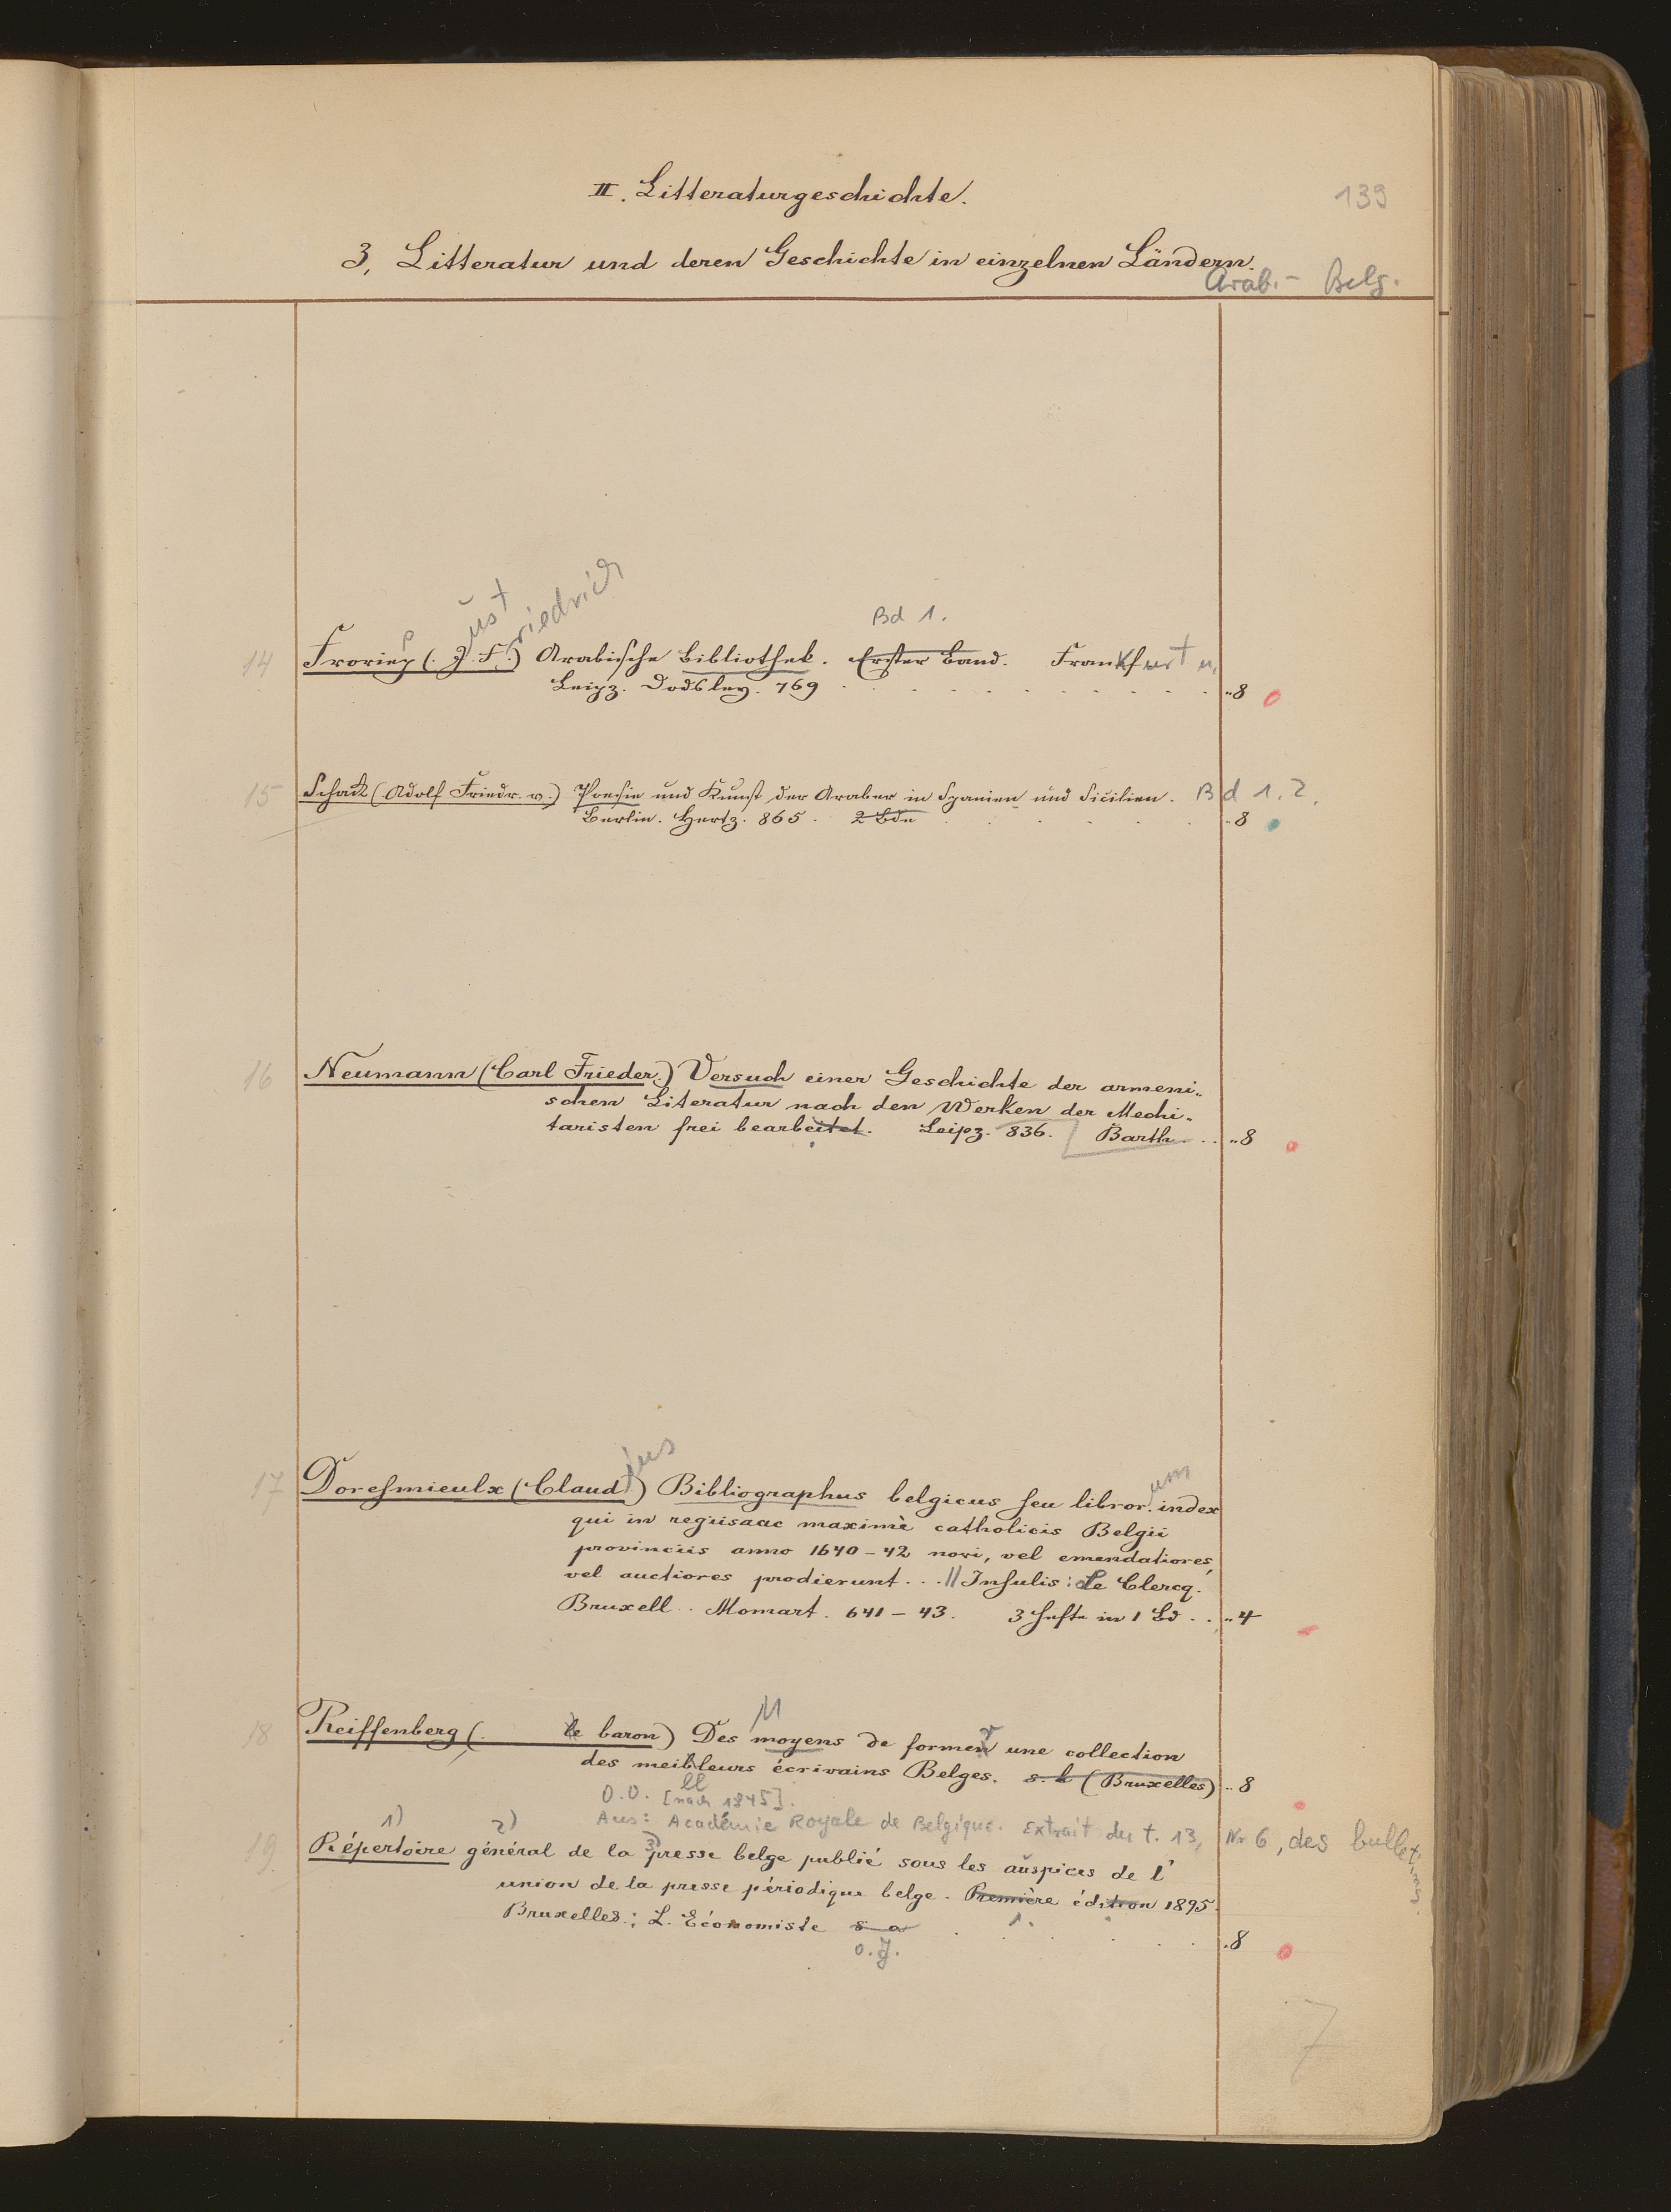 II. Litteraturgeschichte.
139
3, Litteratur und deren Geschichte in einzelnen Ländern.
Arab. - Belg.
ust
riedrich
Bd 1.
14 Froriep (. J. F.) Arabische Bibliothek. Erster Band. Frankfurt u.
Leipz. Dodsley. 769 . . . . . . . . . . „8
15 Schack (Adolf Friedr. v.) Poesie und Kunst der Araber in Spanien und Sicilien. Bd 1.2.
Berlin. Hertz. 865. 2 Bde . . . . . „8
16 Neumann (Carl Frieder.) Versuch einer Geschichte der armeni„
schen Literatur nach den Werken der Mechi„
taristen frei bearbeitet. Leipz. 836. [Barth. . . „8
ius
um
17 Doresmieulx (Claud.) Bibliographus belgicus seu libror. index
qui in regiisaac maximè catholicis Belgii
provinciis anno 1640-42 novi, vel emendatiores,
vel auctiores prodierunt . . . || Insulis: de Clercq.
Bruxell. . Momart. 641-43. 3 Hefte in 1 Bd . . „4
M
18 Reiffenberg (. le baron) Des moyens de former une collection
des meilleurs écrivains Belges. s. l. (Bruxelles) „8
ll
O.O. [nach 1845].
Aus: Académie Royale de Belgique. Extrait du t. 13, Nr 6, des bulletins.
1) 2) 3)
19 Répertoire général de la presse belge publié sous les auspices de l'
union de la presse périodique belge. Première édition 1895.
1.
Bruxelles: L. Économiste s a . . . . . . .8
o. J.
7